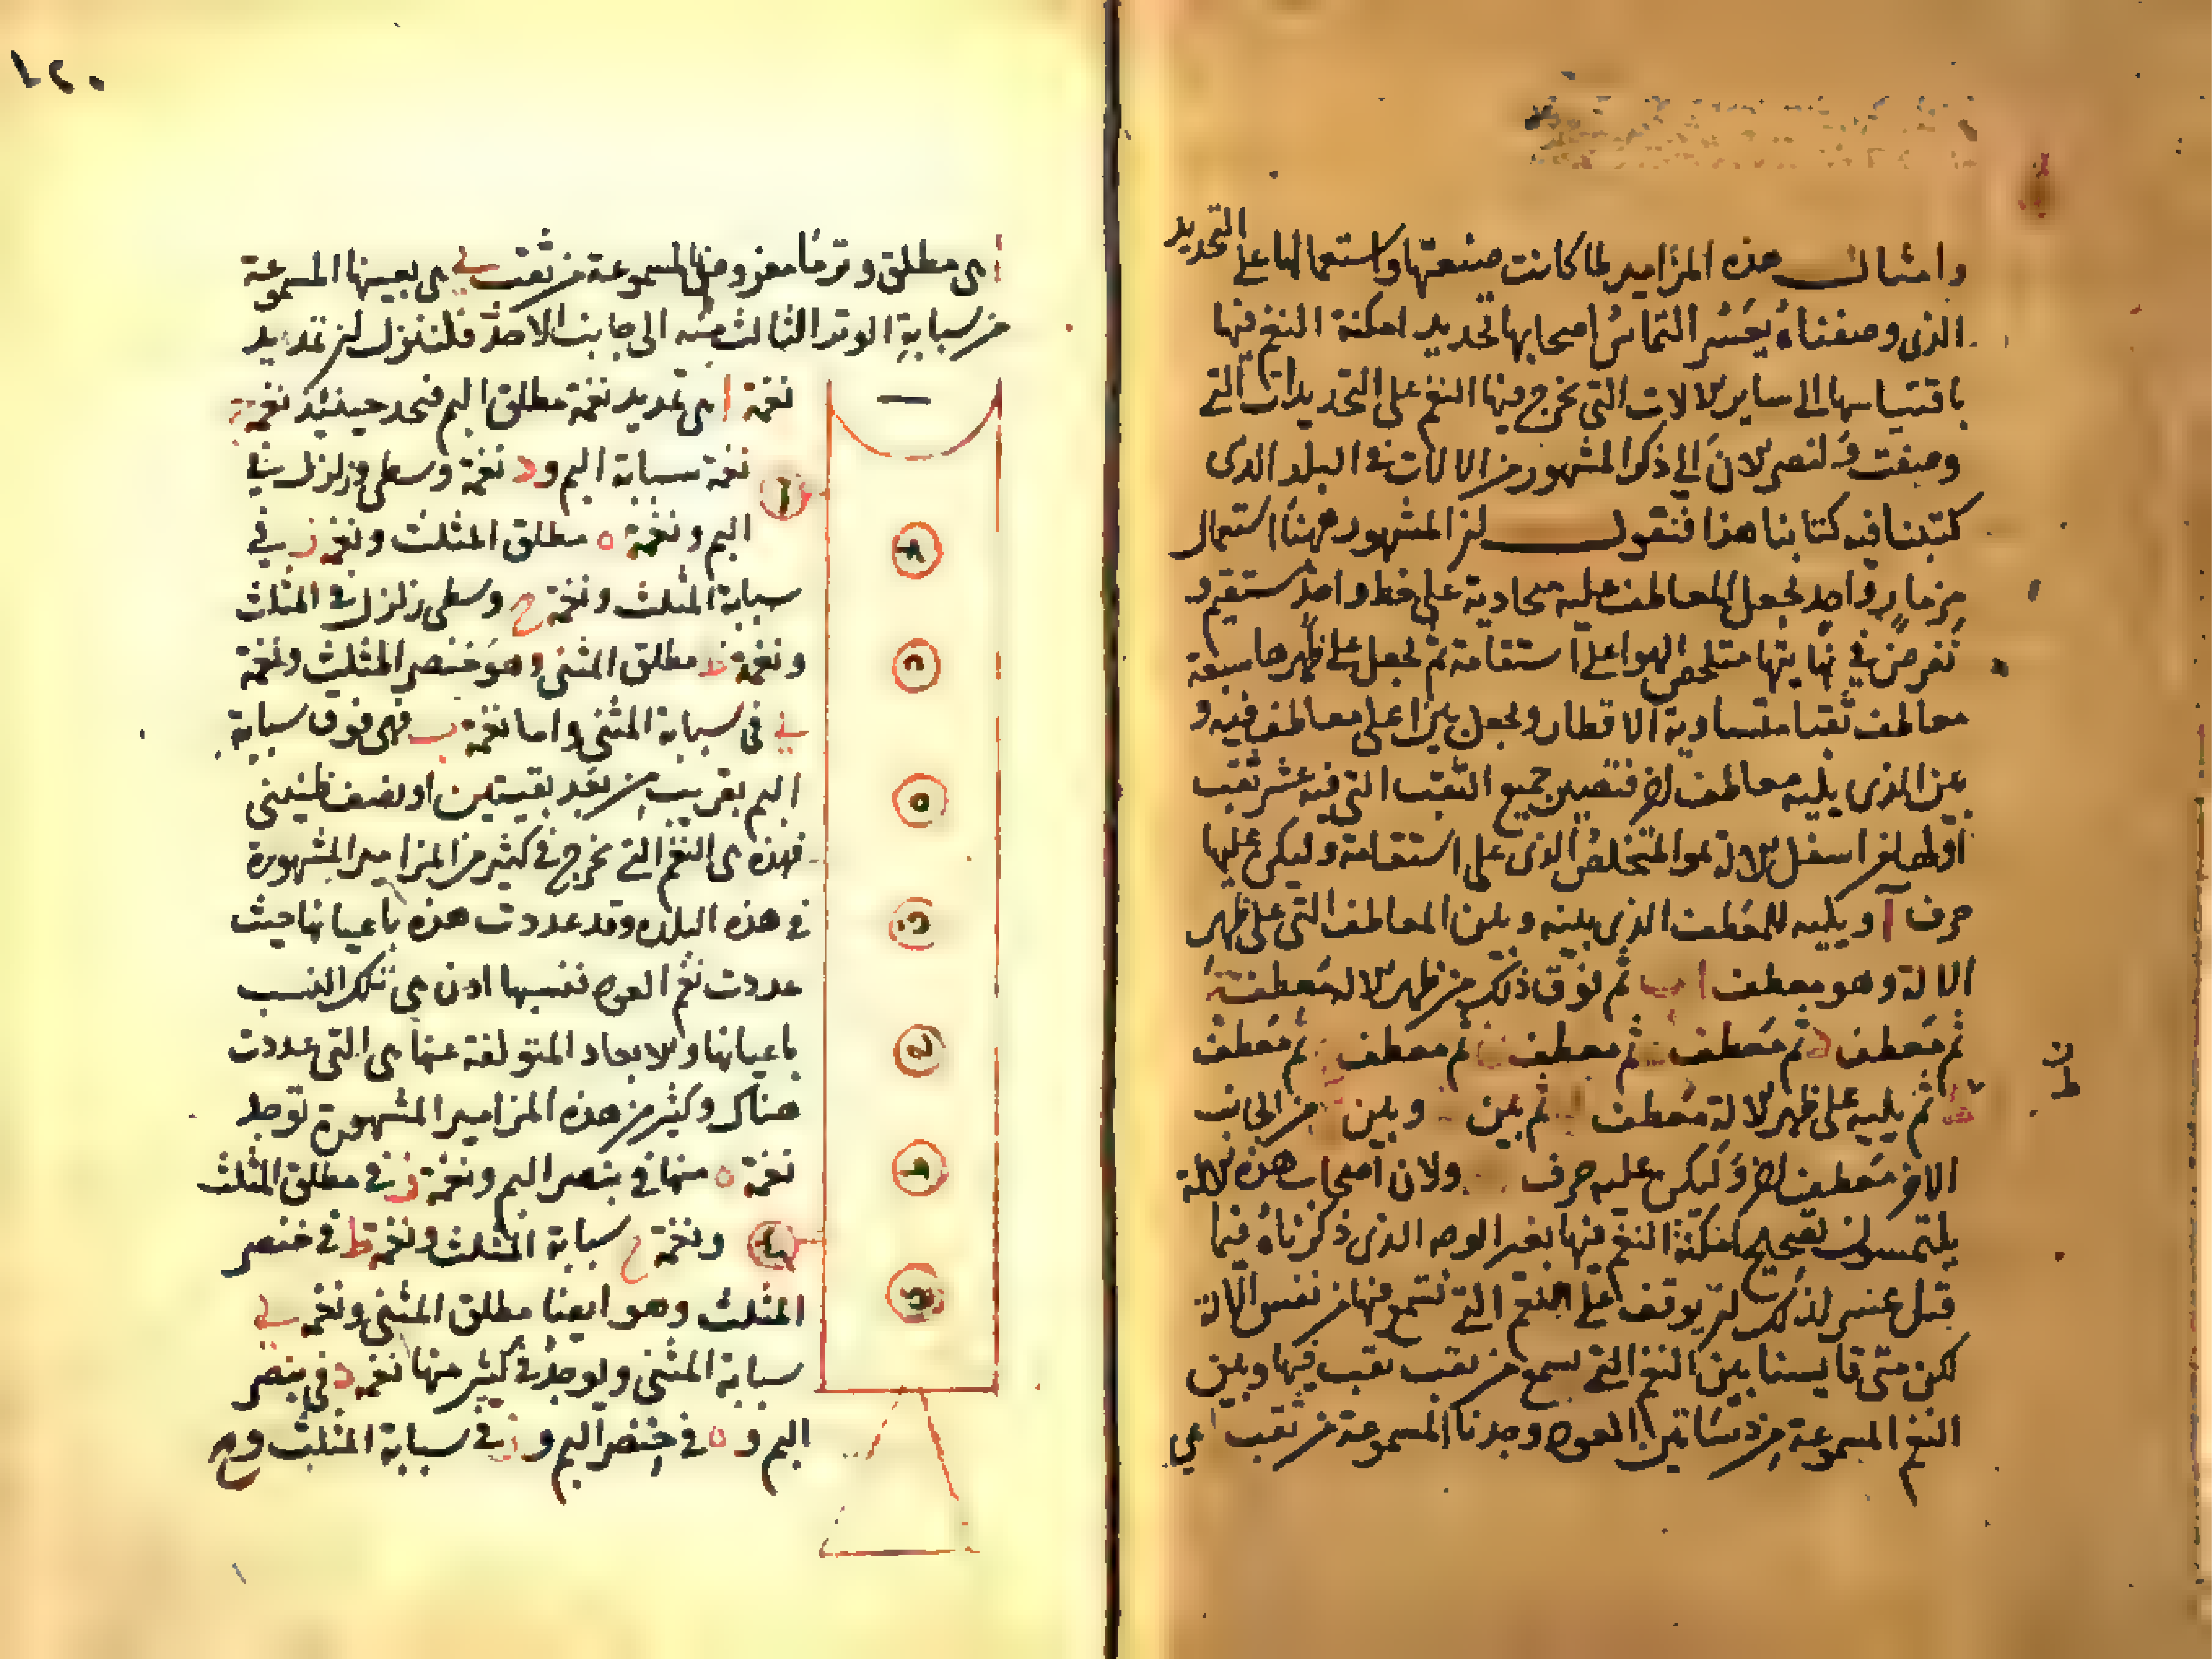 وامثال هذه المزامير لما كانت صنعتها واستعمالها على التحديد
الذى وصفناه يعسر التماس اصحابها تحديد امكنة النغم فيها
باقتياسها الى ساير الالات التى تخرج منها النغم على التحديدات التى
وصفت ولنصر الان الى ذكر المشهور من الالات فى البلد الذى
كتبنا فيه كتابنا هذا فنقول ان المشهور ههنا استعمال
مزمار واحد تجعل المعاطف عليه محاذية على خط واحد مستقيم و
نفرض فى نهايتها متخلص الهوا على استقامة ثم تجعل على ظهرها سبعة
معاطف ثقبا متساوية الاقطار ونجعل بين اعلى معاطف فيه و
بين الذى يليه معاطف اخر فتصير جميع الثقب التى فيه عشر ثقب
اولها من اسفل الالة هو المتخلص الذى على استقامة وليكن عليها
حرف آ ويليه المعطف الذى بينه وبين المعاطف التى على ظهر
الالة وهو معطف ب ثم فوق ذلك من ظهر الالة معطف
ثم معطف د ثم معطف ثم معطف ثم معطف ثم معطف
ثم يليه على ظهر الالة معطف ثم بين وبين من الجانب
الاخر معطف اخر وليكن عليه حرف ولان اصحاب هذه الالة
يلتمسون تصحيح امكنة النغم فيها بغير الوجه الذى ذكرناه فيما
قبل عسر لذلك ان يوقف على النغم التى تسمع فيها من نفس الالة
لكن متى قايسنا بين النغم التى تسمع من ثقب ثقب فيها وبين
النغم المسموعة من دساتين العود وجدنا المسموعة من ثقب ا هى
١٢٠
ا هى مطلق وتر ما مفروض والمسموعة من ثقب ى هى بعينها المسموعة
من سبابة الوتر الثالث منه الى جانب الاحد فلننزل ان تمديد
نغمة ا هى تمديد نغمة مطلق البم فنجد حينئذ نغمة ج
نغمة سبابة البم و د نغمة وسطى زلزل فى
البم ونغمة ه مطلق المثلث ونغمة ز فى
سبابة المثلث ونغمة ح وسطى زلزل فى المثلث
ونغمة ط مطلق المثنى وهو خنصر المثلث ونغمة
ى فى سبابة المثنى واما نغمة ب فهى فوق سبابة
البم بقريب من بعد بقيتين او نصف طنينى
فهذه هى النغم التى تخرج فى كثير من المزامير المشهورة
فى هذه البلدة وقد عددت هذه باعيانها حيث
عددت نغم العود فنسبها اذن هى تلك النسب
باعيانها والابعاد المتولفة عنها هى التى عددت
هناك وكثير من هذه المزامير المشهورة توجد
نغمة ه منها فى بنصر البم ونغمة ز فى مطلق المثلث
ونغمة ح سبابة المثلث ونغمة ط فى خنصر
المثلث وهو ايضا مطلق المثنى ونغمة ى
سبابة المثنى ويوجد فى كثير منها نغمة د فى بنصر
البم و ه فى خنصر البم و ز فى سبابة المثلث و ح